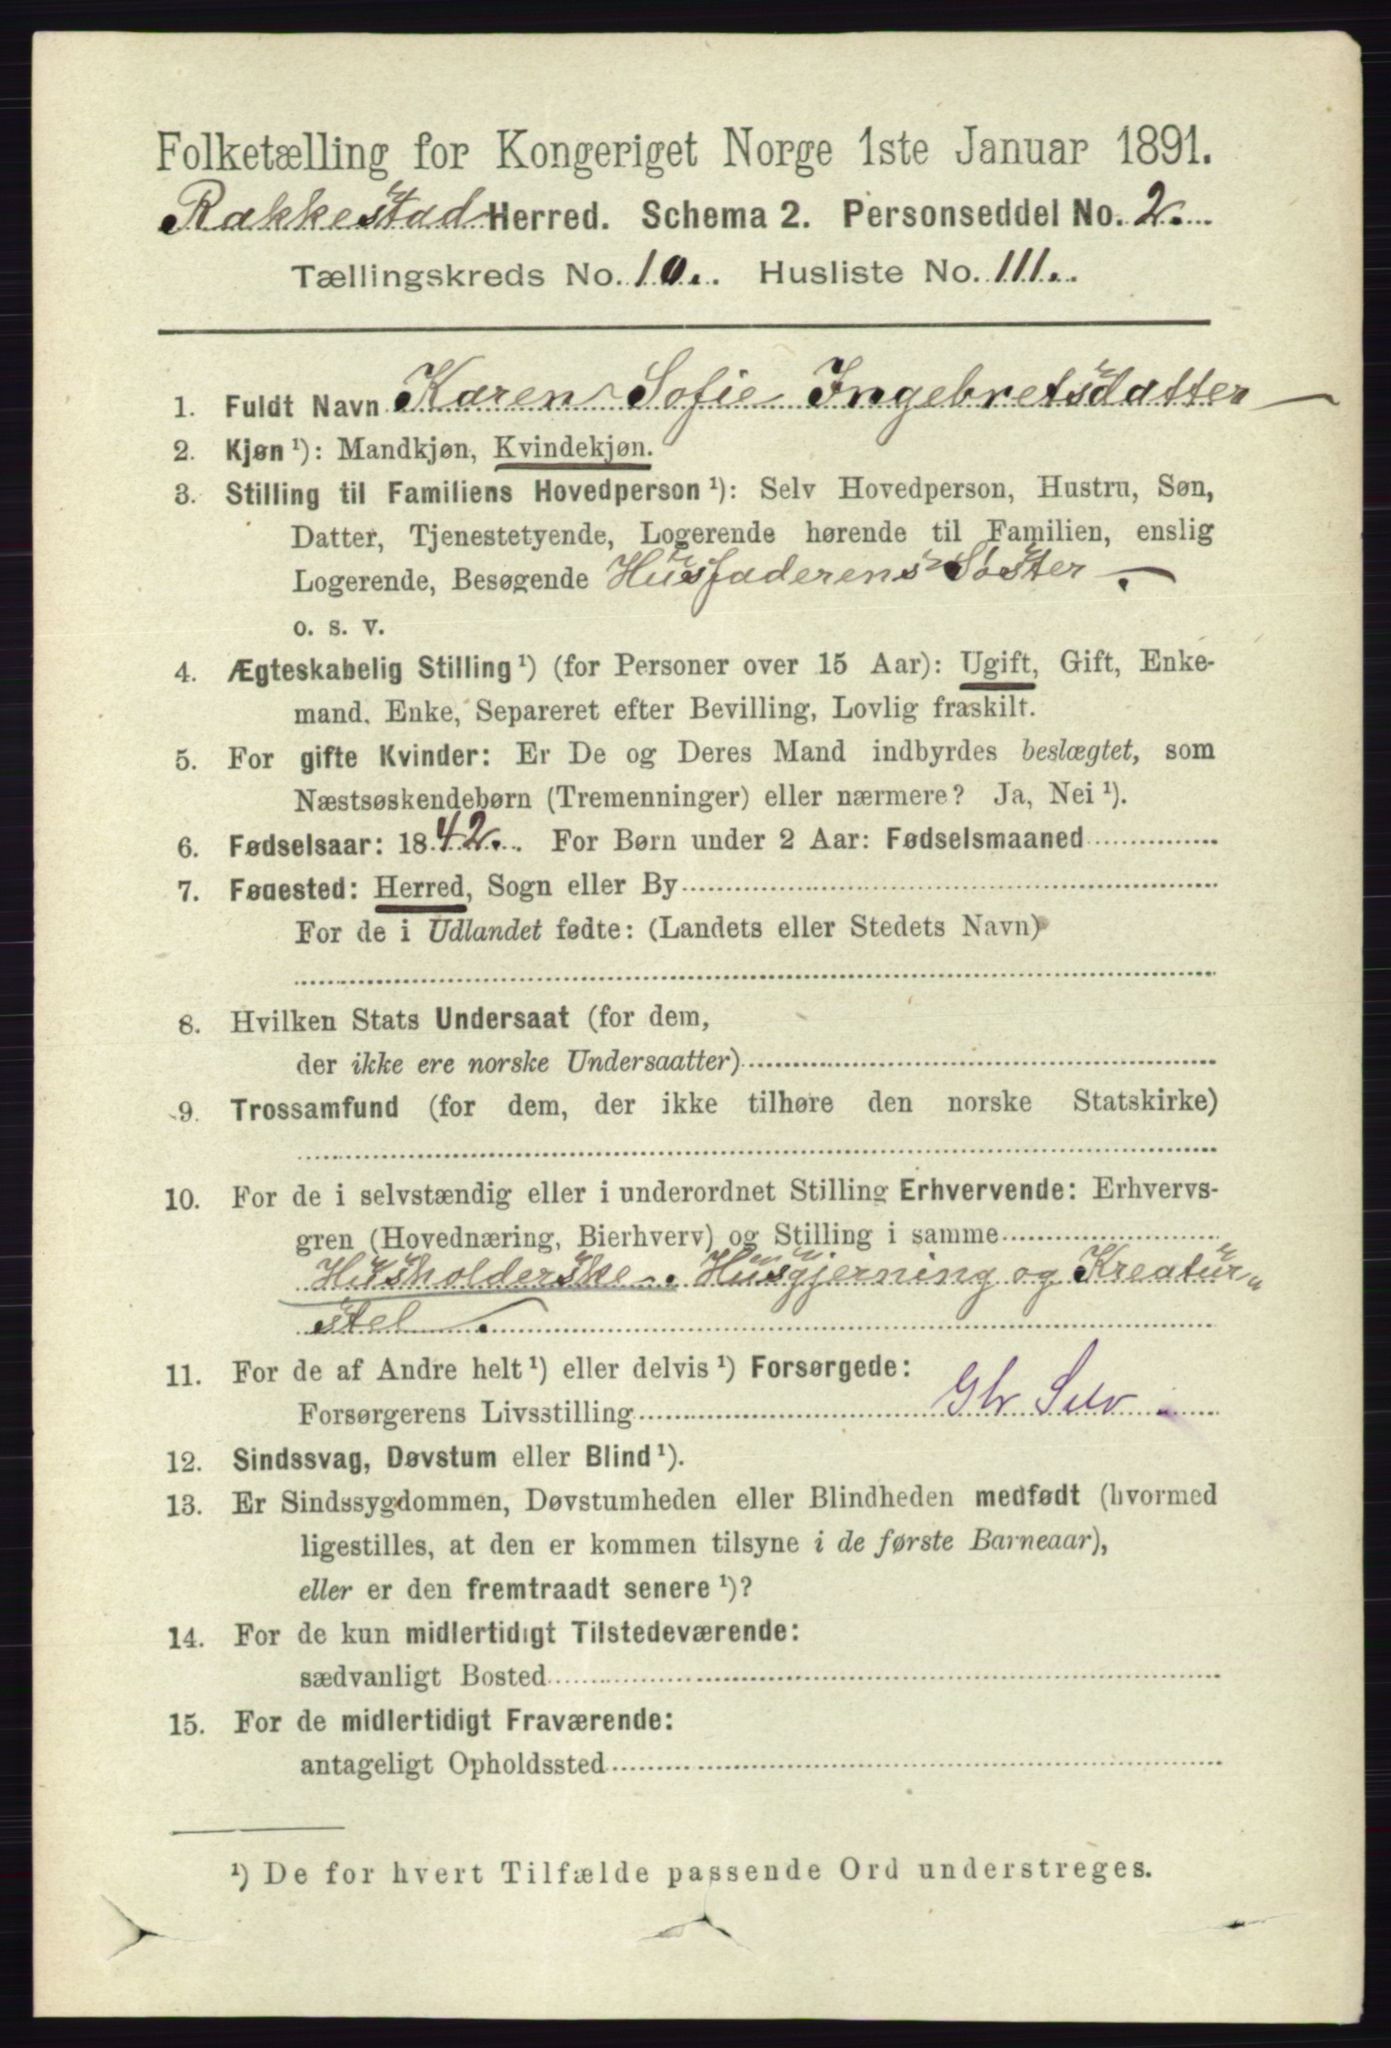 Folketælling for Kongeriget Norge 1ste Januar 1891.
Rakkestad Herred. Schema 2. Personseddel No. 2.
Tællingskreds No. 10. Husliste No. 111.
1. Fuldt Navn Karen Sofie Ingebretsdatter
2. Kjøn ¹): Mandkjøn, Kvindekjøn.
3. Stilling til Familiens Hovedperson ¹): Selv Hovedperson, Hustru, Søn,
Datter, Tjenestetyende, Logerende hørende til Familien, enslig
Logerende, Besøgende Husfaderens Søster.
o. s. v.
4. Ægteskabelig Stilling ¹) (for Personer over 15 Aar): Ugift, Gift, Enke-
mand, Enke, Separeret efter Bevilling, Lovlig fraskilt.
5. For gifte Kvinder: Er De og Deres Mand indbyrdes beslægtet, som
Næstsøskendebørn (Tremenninger) eller nærmere? Ja, Nei ¹).
6. Fødselsaar: 1842. For Børn under 2 Aar: Fødselsmaaned
7. Fødested: Herred, Sogn eller By
For de i Udlandet fødte: (Landets eller Stedets Navn)
8. Hvilken Stats Undersaat (for dem,
der ikke ere norske Undersaatter)
9. Trossamfund (for dem, der ikke tilhøre den norske Statskirke)
10. For de i selvstændig eller i underordnet Stilling Erhvervende: Erhvervs-
gren (Hovednæring, Bierhverv) og Stilling i samme
Husholderske. Husgjerning og Kreatur„
stel.
11. For de af Andre helt ¹) eller delvis ¹) Forsørgede:
Forsørgerens Livsstilling Gbr Selv
12. Sindssvag, Døvstum eller Blind ¹).
13. Er Sindssygdommen, Døvstumheden eller Blindheden medfødt (hvormed
ligestilles, at den er kommen tilsyne i de første Barneaar),
eller er den fremtraadt senere ¹)?
14. For de kun midlertidigt Tilstedeværende:
sædvanligt Bosted
15. For de midlertidigt Fraværende:
antageligt Opholdssted
¹) De for hvert Tilfælde passende Ord understreges.